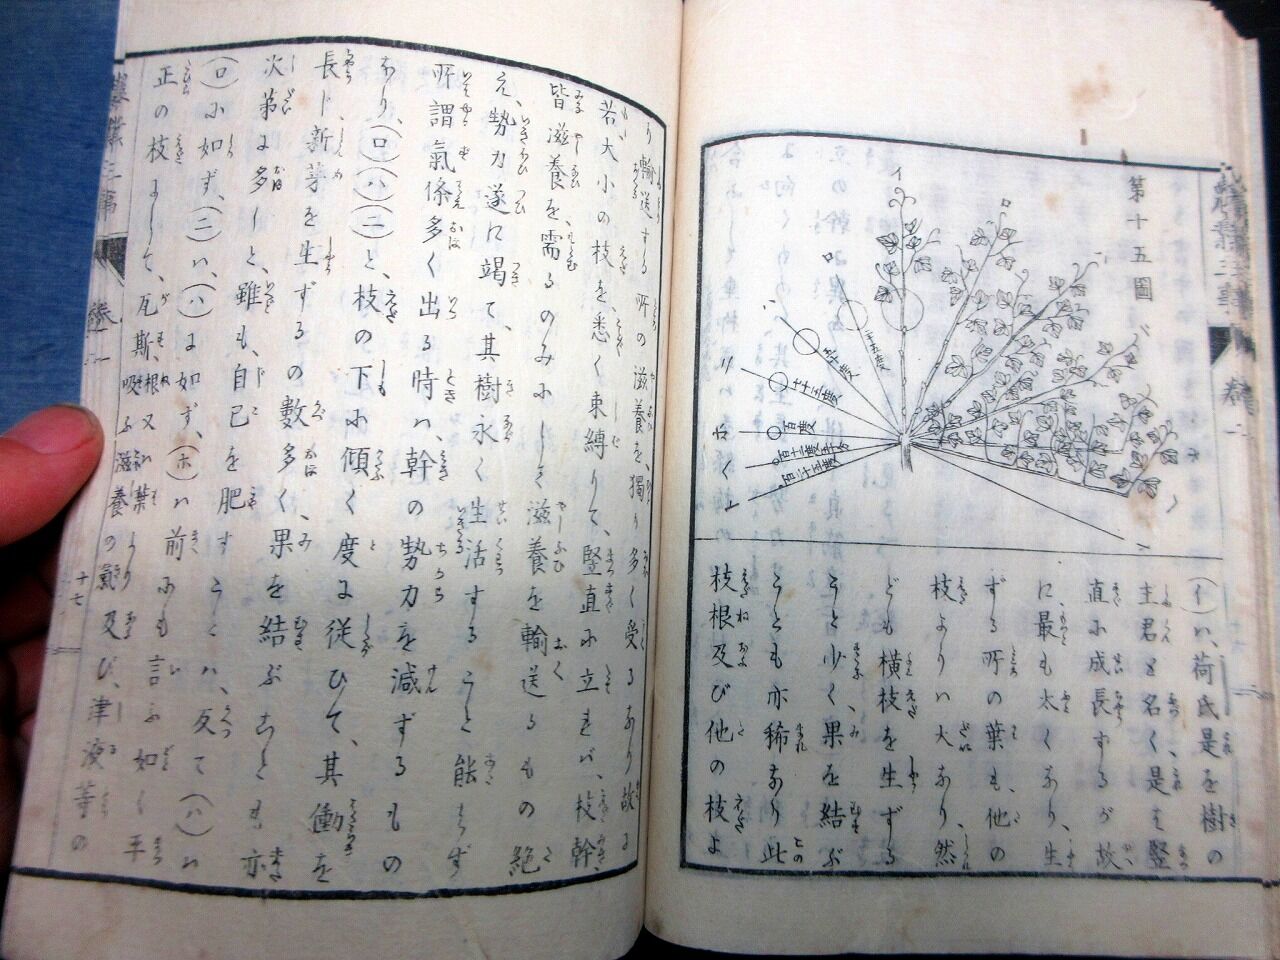 第十五圖
イ
ロ
ロ
二十五度
五十度
七十五度
百度
百十二度五十分
百二十五度
(イ)ハ、荷氏是を樹の
主君と名く、是は竪
直に成長するが故
に、最も太くなり、生
ずる所の葉も、他の
枝よりハ大なり、然
ども横枝を生ずる
こと少く、果を結ぶ
ことも亦稀なり、此
枝根及び他の枝よ
り輸送する所の滋養を、獨り多く受るなり、故に
若大小の枝を、悉く束縛りて、竪直に立れバ、枝幹、
皆滋養を、需るのみにして、滋養を輸送るもの絶
え、勢力遂に竭て、其樹永く生活すること能はず
所謂氣條多く出る時ハ、幹の勢力を減ずるもの
なり、(ロ)(ハ)(ニ)と、枝の下に傾く度に従ひて、其働を
長じ、新芽を生ずるの數多く、果を結ぶことも亦
次第に多しと、雖も、自己を肥すことハ、反て(ハ)ハ
(ロ)に如ず、(ニ)ハ、(ハ)に如ず、(ホ)ハ前にも言ふ如く平
正の枝にして、瓦斯、根又葉より
吸ふ滋養の氣及び、津液等の
農業三事
卷一
十七